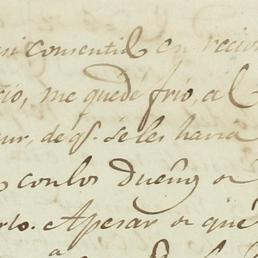 consentil en
cio, me quedé frio, al
de qᵉ. se les havia
con los Dueños de
rto. Apesar de qué
a